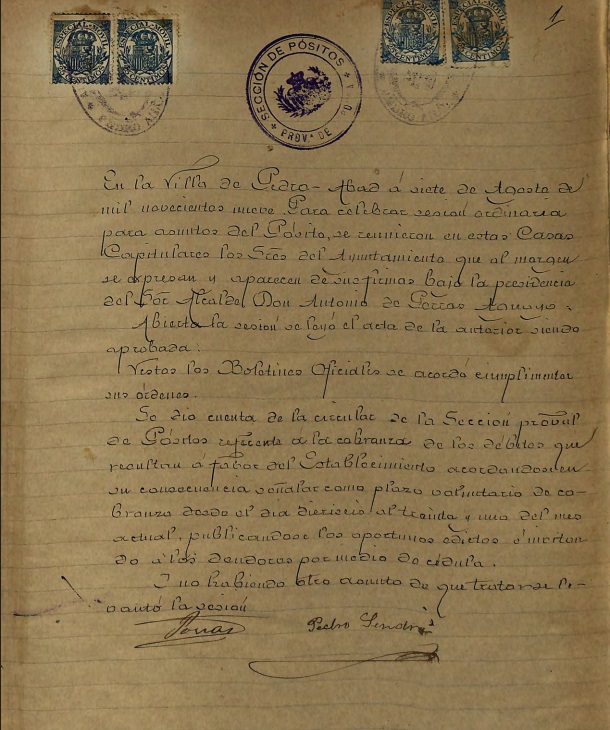 1
ESPECIAL MOVIL
ESPECIAL MOVIL
ESPECIAL MOVIL
ESPECIAL MOVIL
SECCIÓN DE PÓSITOS
PROVª DE
En la Villa de Pedro-Abad á siete de Agosto de
mil novecientos nueve. Para celebrar sesion ordinaria
para asuntos del Pósito, se reunieron en estas Casas
Capitulares los Sres del Ayuntamiento que al margen
se expresan y aparecen de sus firmas bajo la presidencia
del Sor Alcalde Don Antonio de Porras Aguayo.
Abierta la sesion se leyó el acta de la anterior siendo
aprobada.
Vistos los Boletines Oficiales se acordó cumplimentar
sus órdenes.
Se dio cuenta de la circular de la Seccion provàl
de Pósitos referente a la cobranza de los débitos que
resultan á fabor del Establecimiento acordandose en
su consecuencia señalar como plazo voluntario de co-
branza desde el dia dieciseis al treinta y uno del mes
actual, publicandose los oportunos edictos é invitan-
do á los deudores por medio de cédula.
I no habiendo otro asunto de que tratar se le-
vantó la sesion
Porras
Pedro